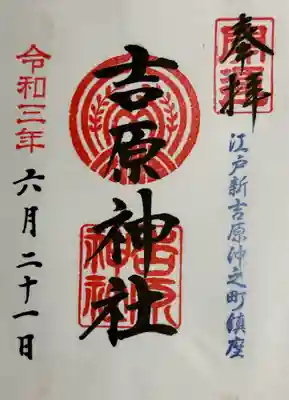 奉拝
江戸新吉原仲之町鎮座
吉原神社
吉原
神社
令和三年
六月二十一日